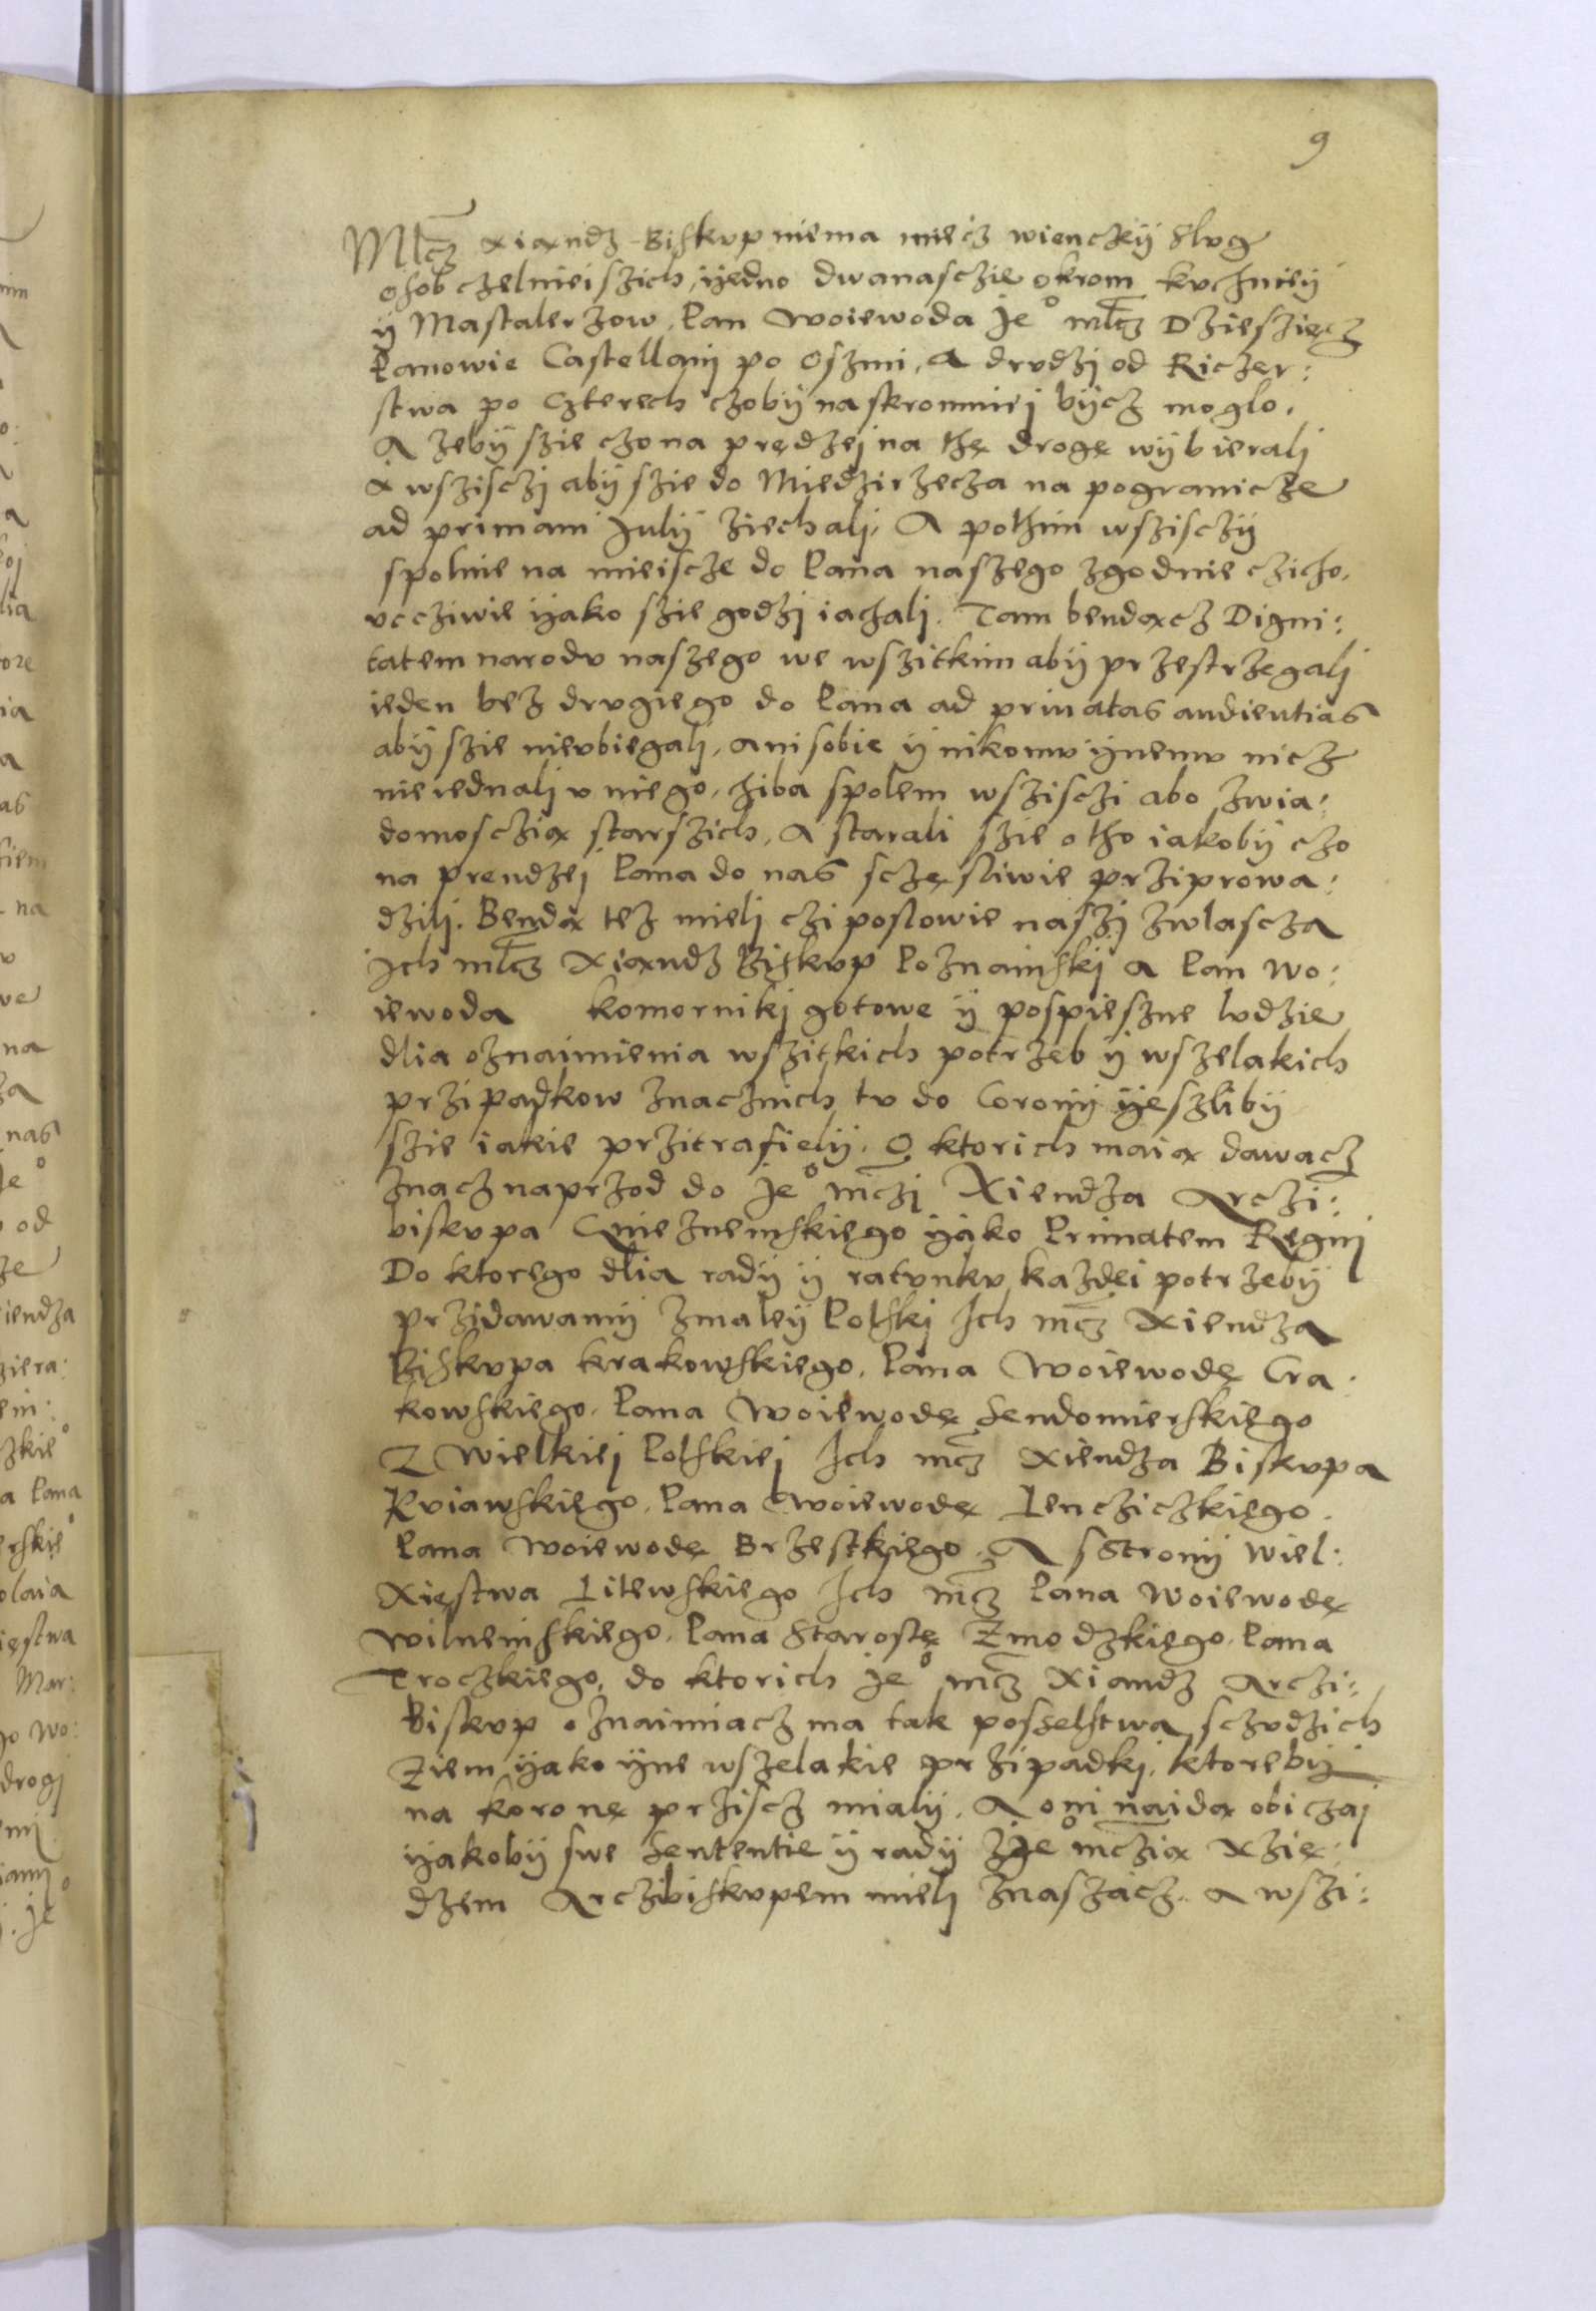 9
Młcz xiąndz Biskup niema miecz wienczÿ slug
osob czelnieiszich, ÿedno dwanasczie okrom kuchnieÿ
ÿ Mastalerzow. Pan Woiewoda Je° młcz Dzieszięcz
Panowie Castellanj po oszmi, a drudzj od Riczer:
stwa po czterech czobÿ naskromniej bÿcz moglo.
A zebÿ szie czona prędzej na thę drogę wÿbieralj
a wszisczj abÿ szie do Miedzirzecza na pogranicze
ad primam Julÿ ziechalj. A pothim wszisczÿ
spolnie na mieiscze do Pana naszego zgodnie czicho,
ucczciwie ÿako szie godzj iachalj. Tam bendącz Digni:
tatem narodu naszego we wszitkim abÿ przestrzegalj
ieden bez drugiego do Pana ad priuatas audientias
abÿ szie nieubiegalj, ani sobie ÿ nikomu ÿnemu nicz
nieiednalj u niego, chiba spolem wszisczi abo zwia:
domosczią starszich, a starali szie o tho iakobÿ czo
na prendzej Pana do nas sczęsliwie przÿprowa:
dzilj. Bendą tez mielj czi poslowie naszj zwlascza
Ich młcz Xiąndz Biskup Poznainskj a Pan Wo:
iewoda komornikj gotowe ÿ pospieszne ludzie
dlia oznaimienia wszitkich potrzeb ÿ wszelakich
przipadkow znacznich tu do Coronÿ ÿeszlibÿ
szie iakie przitrafielÿ. O ktorich maią dawacz
znacz naprzod do Je° mczj Xiendza Arczi:
biskupa Gnieznenskiego ÿako Primatem Regnj
Do ktorego dlia radÿ ÿ ratunku kazdei potrzebÿ
przidawamÿ zmaleÿ Polskj Ich mcz Xiendza
Biskupa krakowskiego. Pana Woiewodę Cra:
kowskiego. Pana Woiewodę Sendomierskiego
Z Wielkiej Polskiej Ich mcz Xiendza Biskupa
Kuiawskiego. Pana Woiewodę Lenczickiego.
Pana Woiewodę Brzestkiego. A sStronÿ Wiel:
Xięstwa Litewskiego Ich mcz Pana Woiewodę
Wilnenskiego. Pana Starostę Zmodzkiego. Pana
Troczkiego, do ktorich Je° mcz Xiandz Arczi:
Biskup oznaimiacz ma tak posselstwa sczudzich
Ziem ÿako ÿne wszelakie przipadkj, ktorebÿ
na koronę przisćz mialÿ. A oni naida obiczaj
ÿakobÿ swe Sententie ÿ radÿ zJe° mczią Xzię:
dzem Arczibiskupem mielj znaszacz. a wszi: